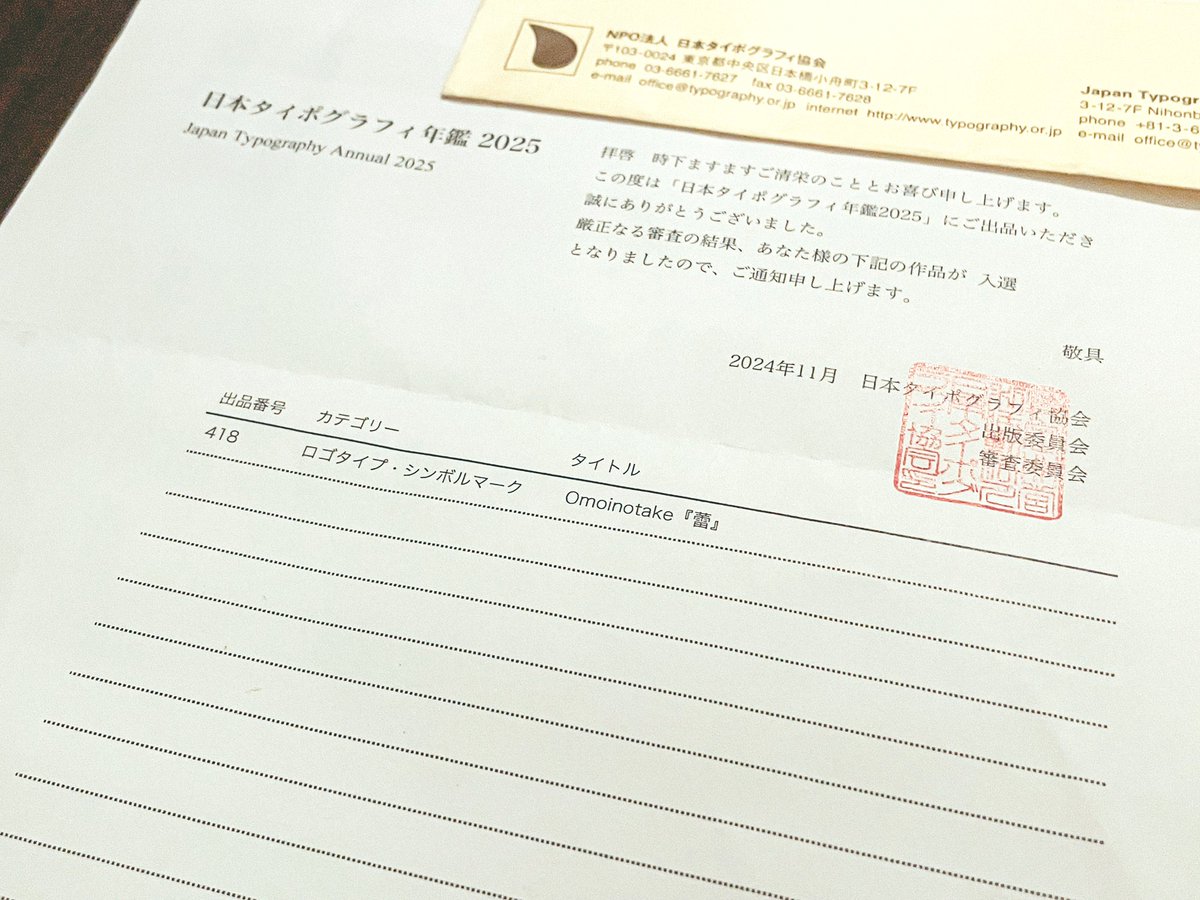 NPO法人 日本タイポグラフィ協会
〒103-0024 東京都中央区日本橋小舟町3-12-7F
phone 03-6661-7627 fax 03-6661-7628
e-mail office@typography.or.jp internet http://www.typography.or.jp
Japan Typogr
3-12-7F Nihonb
phone +81-3-6
e-mail office@t
日本タイポグラフィ年鑑 2025
Japan Typography Annual 2025
拝啓 時下ますますご清栄のこととお喜び申し上げます。
この度は「日本タイポグラフィ年鑑2025」にご出品いただき
誠にありがとうございました。
厳正なる審査の結果、あなた様の下記の作品が 入選
となりましたので、ご通知申し上げます。
敬具
2024年11月 日本タイポグラフィ協会
出版委員会
審査委員会
出品番号 カテゴリー タイトル
418 ロゴタイプ・シンボルマーク Omoinotake『蕾』